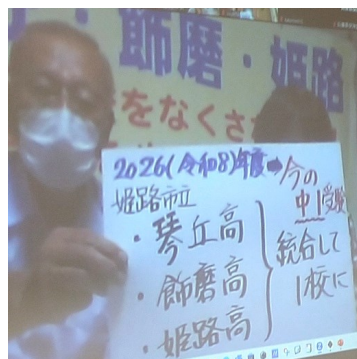 ・飾磨・姫路
をなくさ
2026(令和8)年度➡今の
中1受験
姫路市立
・琴丘高
・飾磨高
・姫路高
統合して
1校に